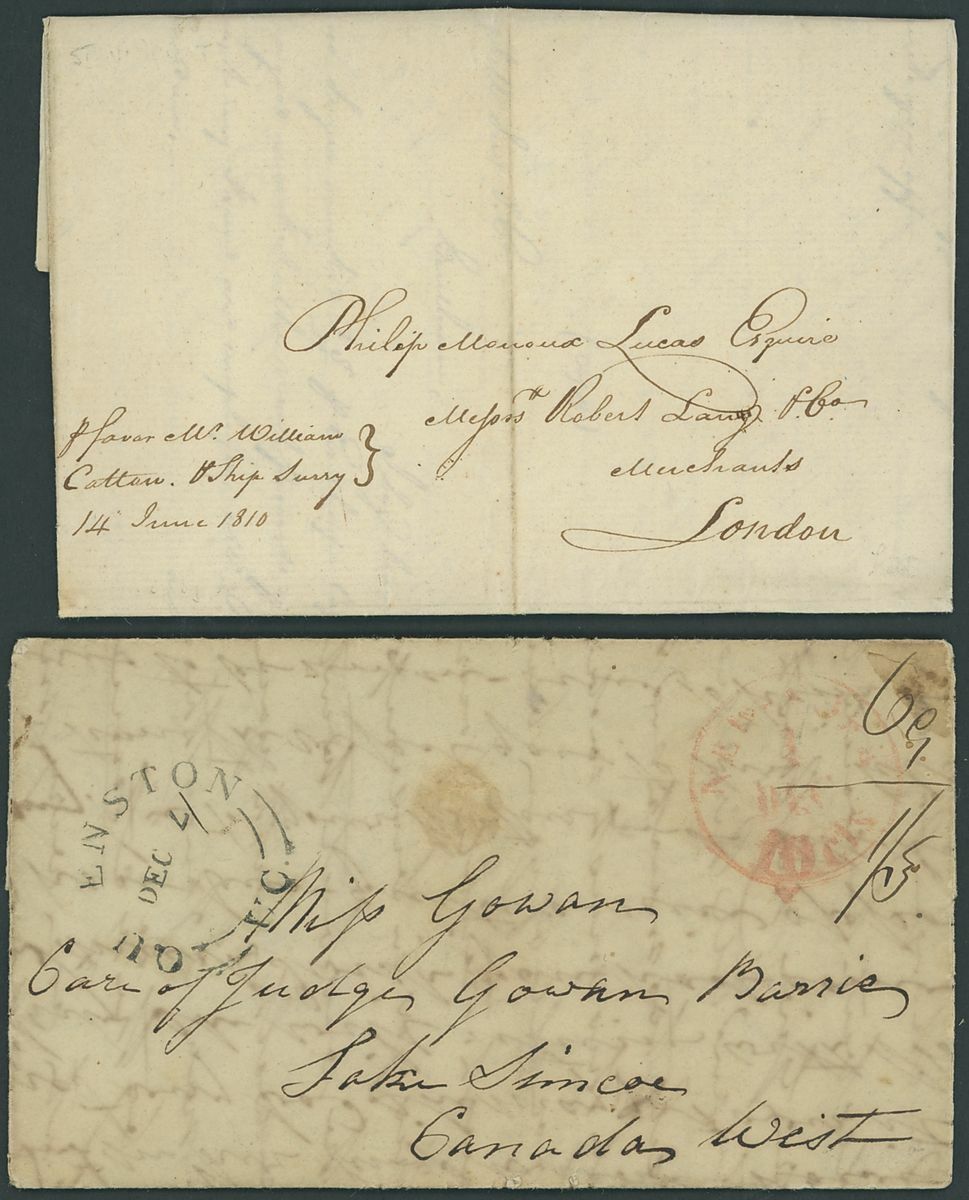 Philip Monoux Lucas Esquire
Messrs Robert Lang & Co
Merchants
London
favor Mr. William
Catton. Ship Surry
14 June 1810
NEW
10 cts
6
1/5
ENSTON
DEC
Miss Gowan
Care of Judge Gowan Barrie
Lake Simcoe
Canada West